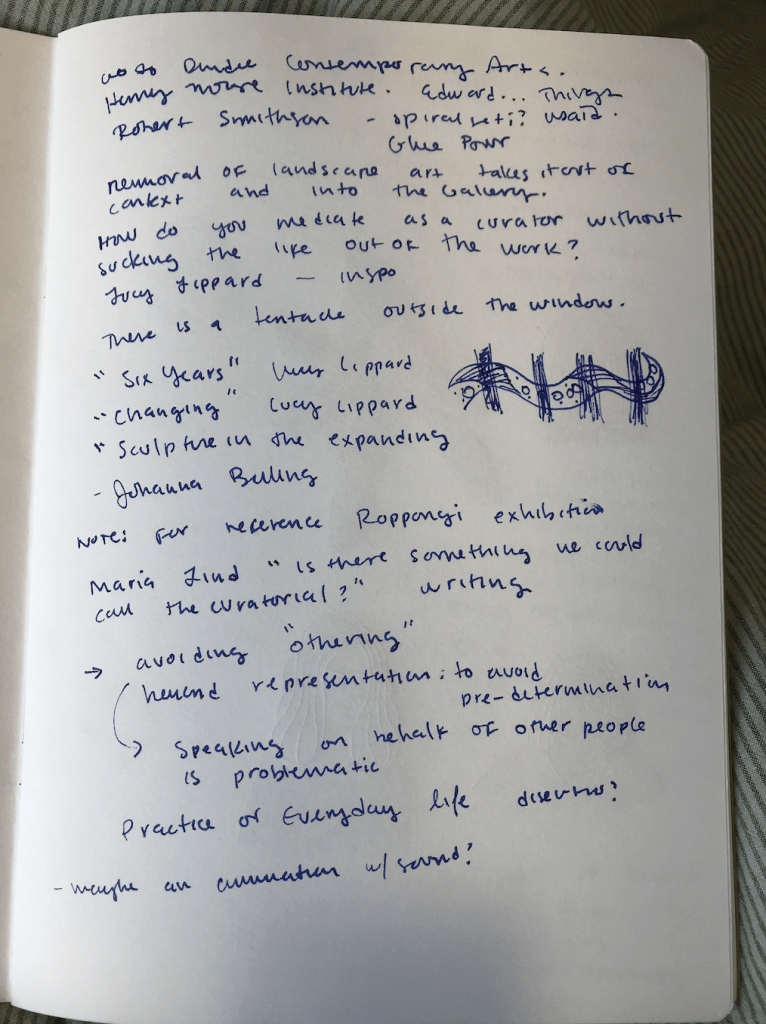 Dundee Contemporary Arts.
Henry Moore Institute. Edward... Things
Robert Smithson - spiral jetti? usaid.
Glue Pour
removal of landscape art takes it out of
context and into the Gallery.
How do you mediate as a curator without
sucking the life out of the work?
Lucy Lippard — inspo
There is a tentacle outside the window.
"Six Years" Lucy Lippard
"Changing" Lucy Lippard
"Sculpture in the expanding
- Johanna Billing
Note: for reference Roppongi exhibition
Maria Lind "is there something we could
call the curatorial?" writing
→ avoiding "othering"
beyond representation: to avoid
pre-determination
→ Speaking on behalf of other people
is problematic
Practice of Everyday life
- maybe an animation w/ sound?